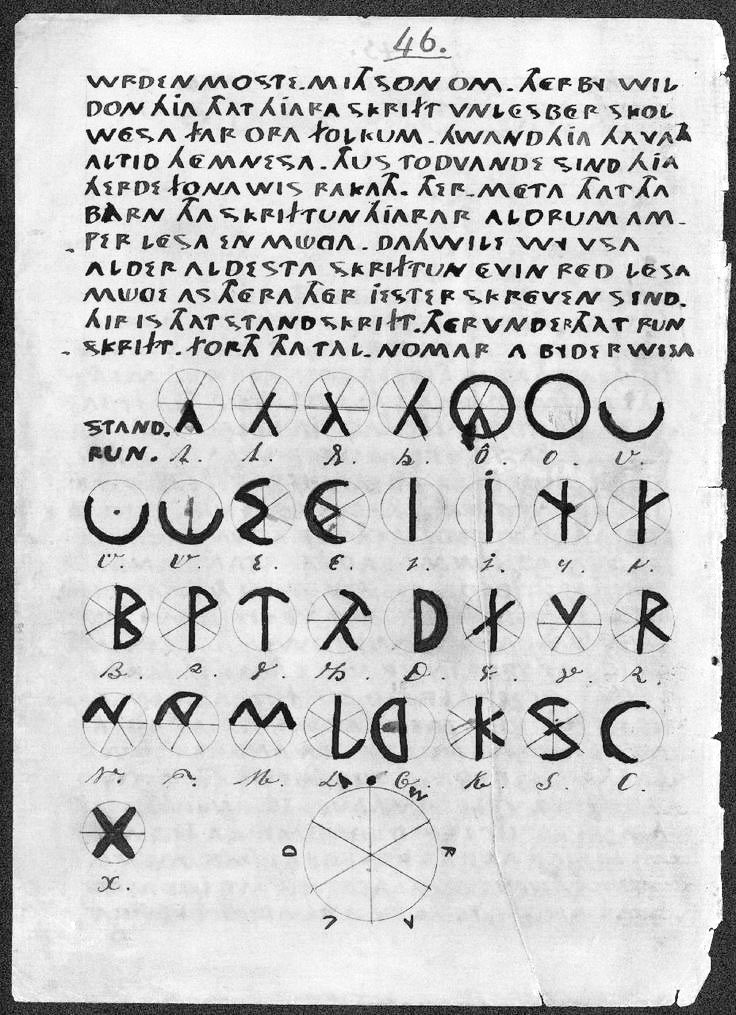 46.
WRDEN MOSTE. MITH SON OM. THER BY WIL
DON HIA THAT HIARA SKRIFT VNLESBER SKOL
WESA FAR ORA FOLKUM. HWAND HIA HAVATH
ALTID HEMNESA. THUS TODVANDE SIND HIA
HERDE FONA WIS RAKATH. THER. META THAT THA
BARN THA SKRIFTUN HIARAR ALDRUM AM-
PER LESA EN MÜGA. DAHWILE WY VSA
ALDER ALDESTA SKRIFTUN EVIN RED LESA
MÜGE AS THERA THER JESTER SKREVEN SIND.
HIR IS THAT STANDSKRIFT. THERVNDER THAT RUN
SKRIFT. FORTH THA TAL-NOMAR A BYDER WISA
STAND.
RUN. A. Ô. O. U.
E. I. J. Y.
B. P. T. TH. D. F. V. R.
N. M. L. G. K. S. C.
X.